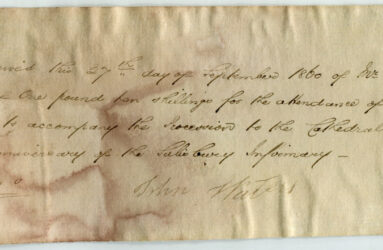 this 27th day of September 1860 of Mr
One pound ten shillings for the attendance of
to accompany the Procession to the Cathedral
of the Salisbury Infirmary —
John